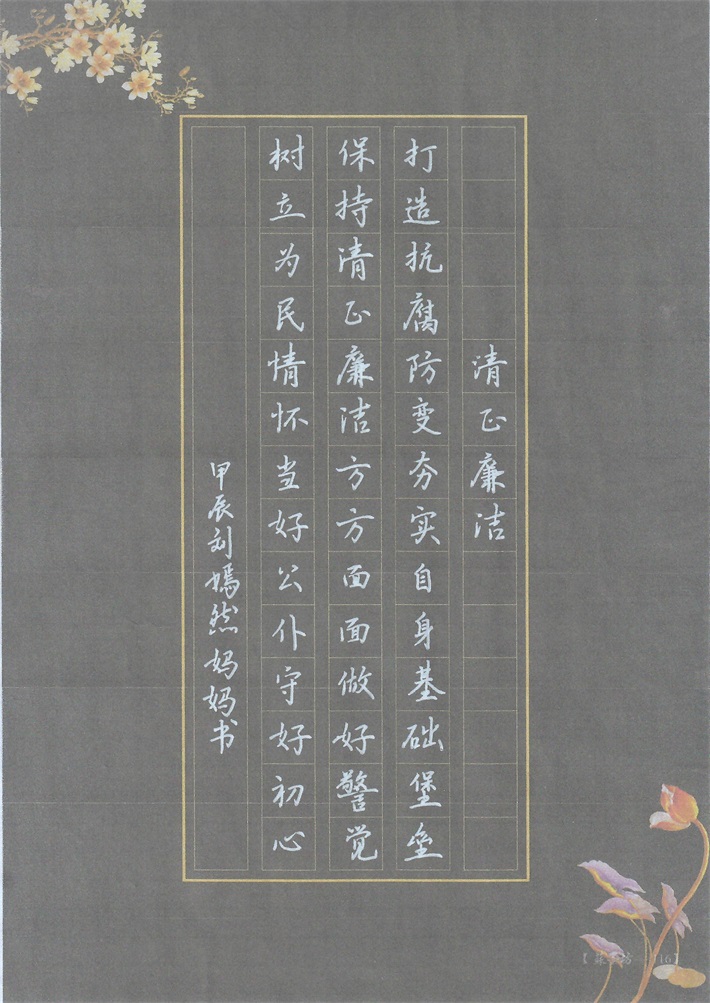 清正廉洁
打造抗腐防变夯实自身基础堡垒
保持清正廉洁方方面面做好警觉
树立为民情怀当好公仆守好初心
甲辰刘嫣然妈妈书